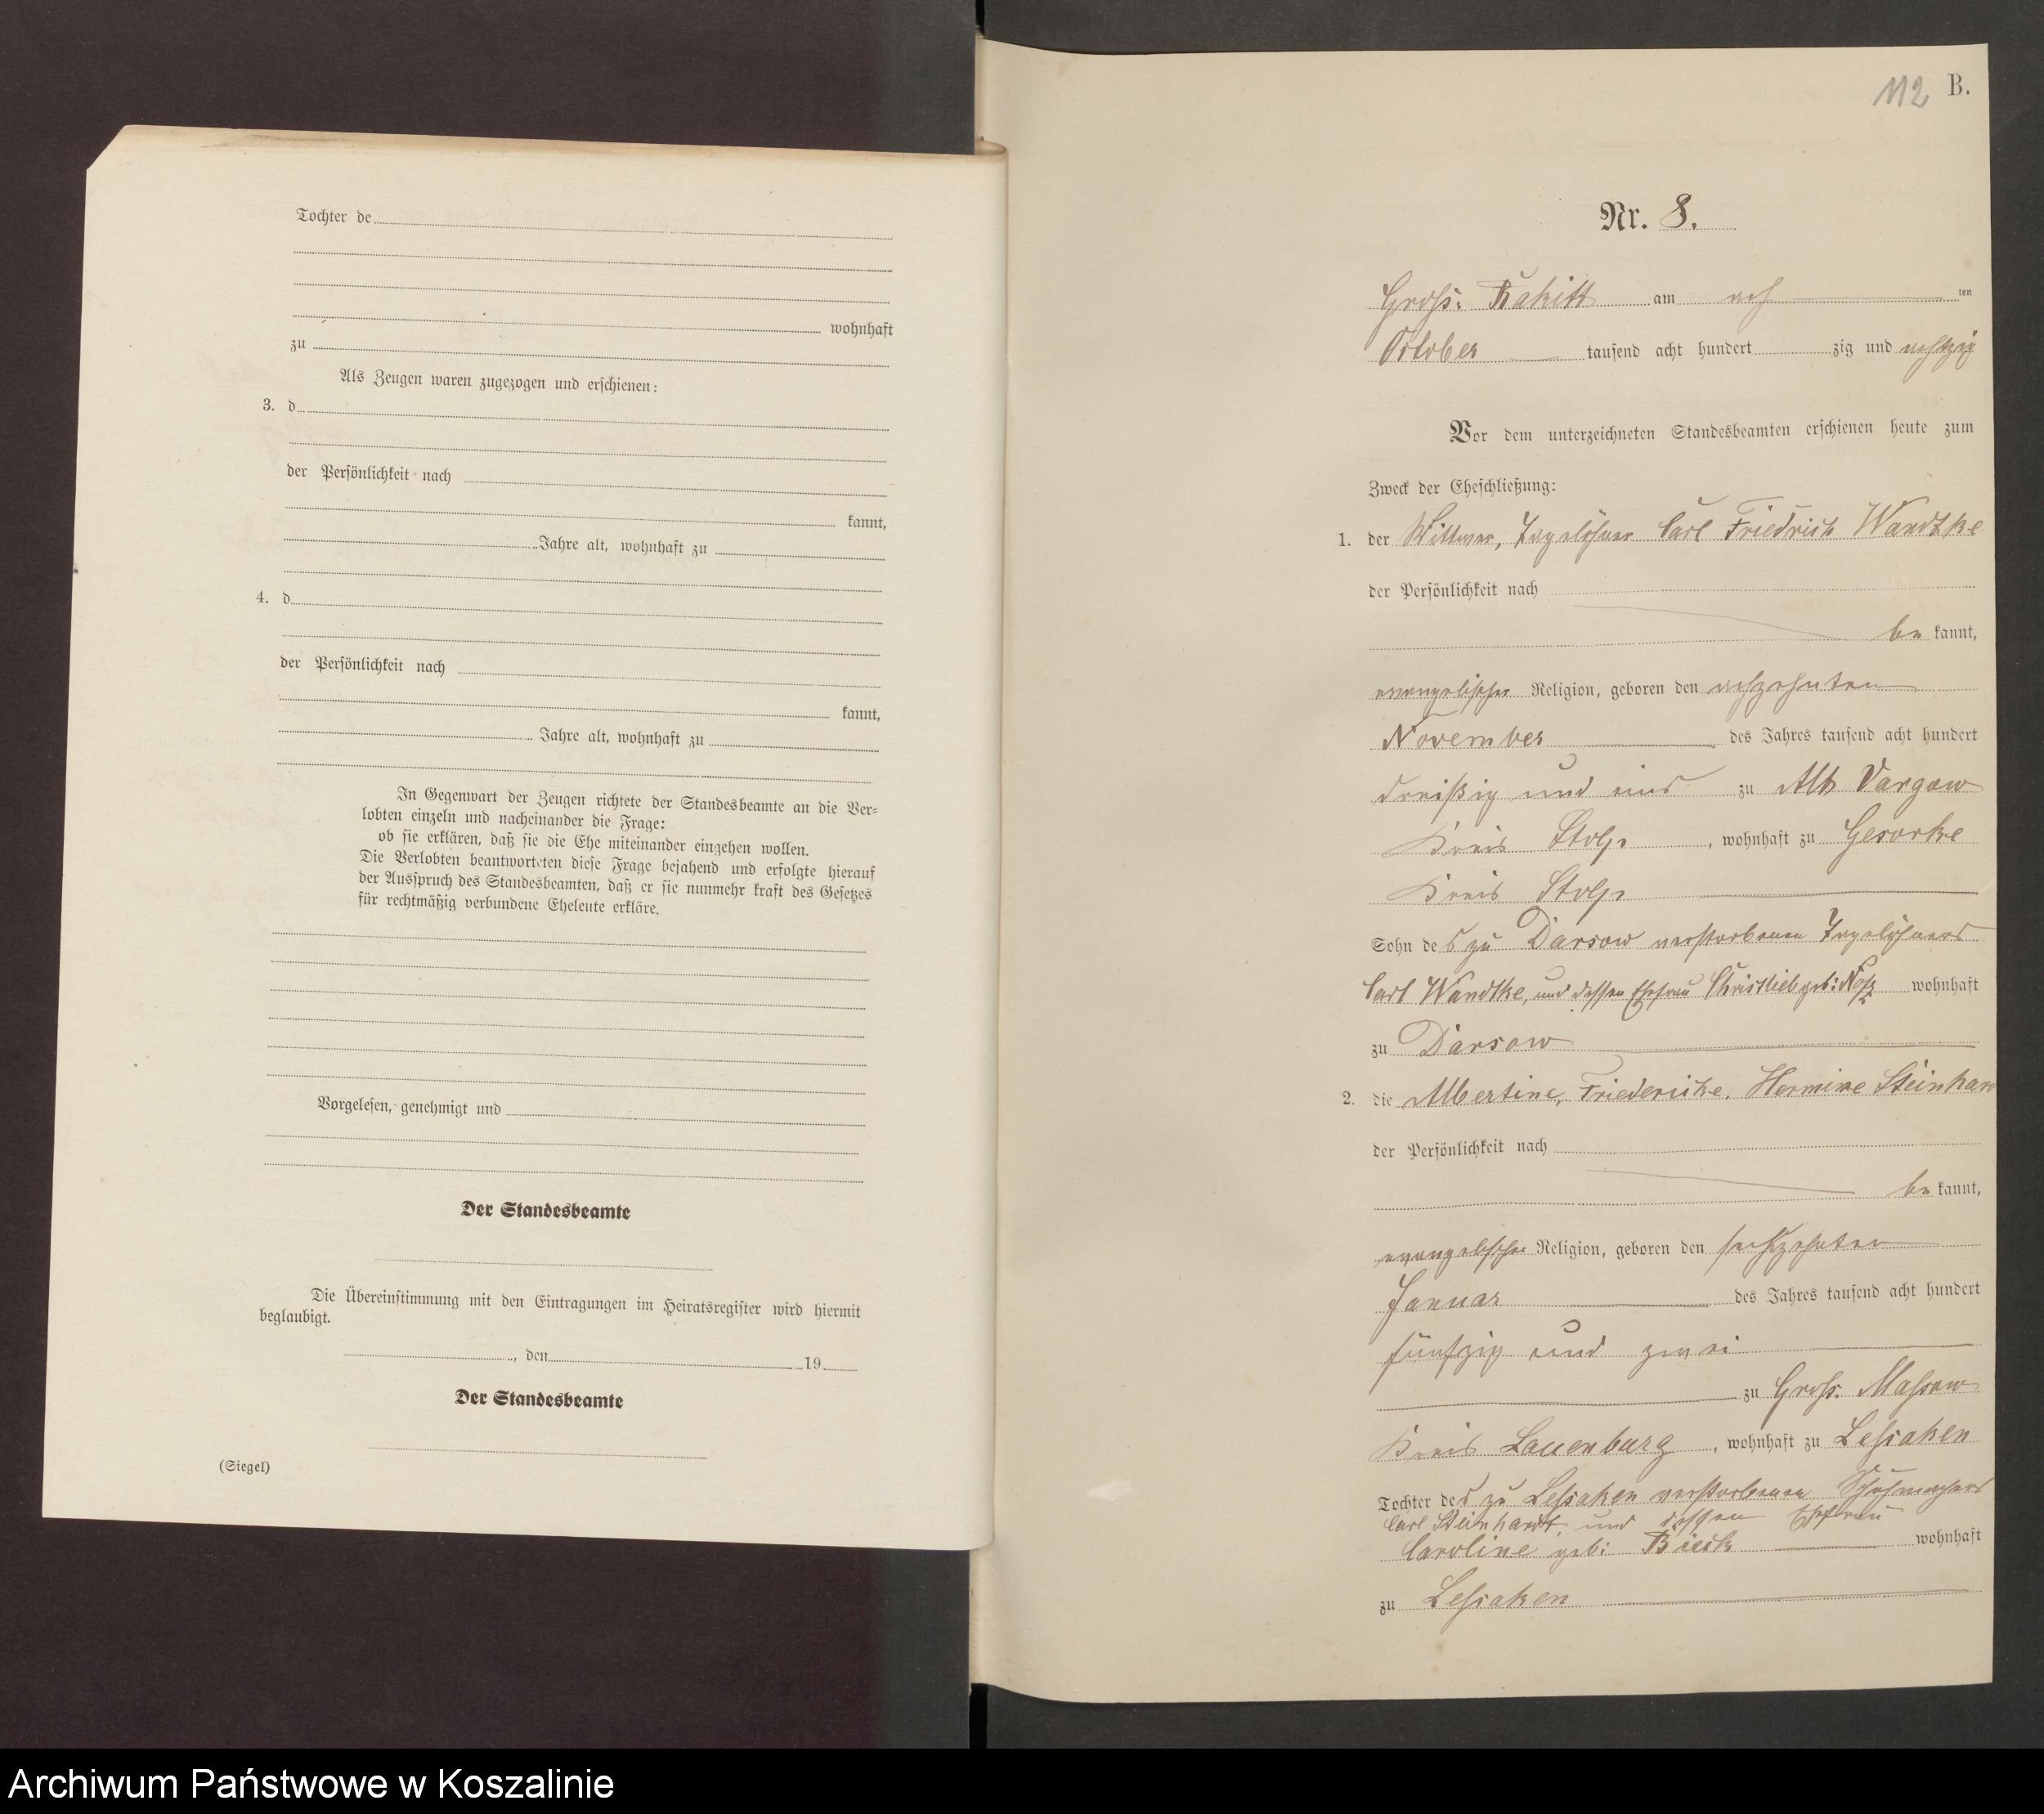 Tochter de
wohnhaft
zu
Als Zeugen waren zugezogen und erschienen:
3. d
der Persönlichkeit nach
kannt,
Jahre alt, wohnhaft zu
4. d
der Persönlichkeit nach
kannt,
Jahre alt, wohnhaft zu
In Gegenwart der Zeugen richtete der Standesbeamte an die Ver-
lobten einzeln und nacheinander die Frage:
ob sie erklären, daß sie die Ehe miteinander eingehen wollen.
Die Verlobten beantworteten diese Frage bejahend und erfolgte hierauf
der Ausspruch des Standesbeamten, daß er sie nunmehr kraft des Gesetzes
für rechtmäßig verbundene Eheleute erkläre.
Vorgelesen, genehmigt und
Der Standesbeamte
Die Übereinstimmung mit den Eintragungen im Heiratsregister wird hiermit
beglaubigt.
, den 19
Der Standesbeamte
(Siegel)
112 B.
Nr. 8.
Groß: Rakitt am ach ten
October tausend acht hundert zig und achtzig
Vor dem unterzeichneten Standesbeamten erschienen heute zum
Zweck der Eheschließung:
1. der Wittwer, Tagelöhner Carl Friedrich Wandtke
der Persönlichkeit nach
be kannt,
evangelischer Religion, geboren den achzehnten
November des Jahres tausend acht hundert
dreißig und eins zu Alt Vargow
Kreis Stolp, wohnhaft zu Gesorke
Kreis Stolp
Sohn des zu Darsow verstorbenen Tagelöhners
Carl Wandtke, und dessen Ehefrau Christlieb geb: wohnhaft
zu Darsow
2. die Albertine, Friedericke, Hermine Steinhar
der Persönlichkeit nach
be kannt,
evangelischer Religion, geboren den sechszehnten
Januar des Jahres tausend acht hundert
fünfzig und zwei
zu Groß. Massow
Kreis Lauenburg, wohnhaft zu Lessaken
Tochter des zu Lessaken verstorbenen Schuhmachers
Carl Steinhardt, und dessen Ehefrau
Caroline geb: Bieck wohnhaft
zu Lessaken
Archiwum Państwowe w Koszalinie